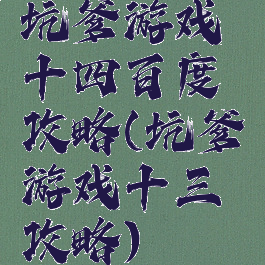 坑爹游戏
十四百度
攻略(坑爹
游戏十三
攻略)